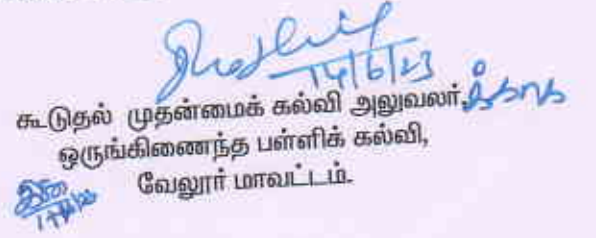 14/6/23
கூடுதல் முதன்மைக் கல்வி அலுவலர்,க்காக
ஒருங்கிணைந்த பள்ளிக் கல்வி,
வேலூர் மாவட்டம்.